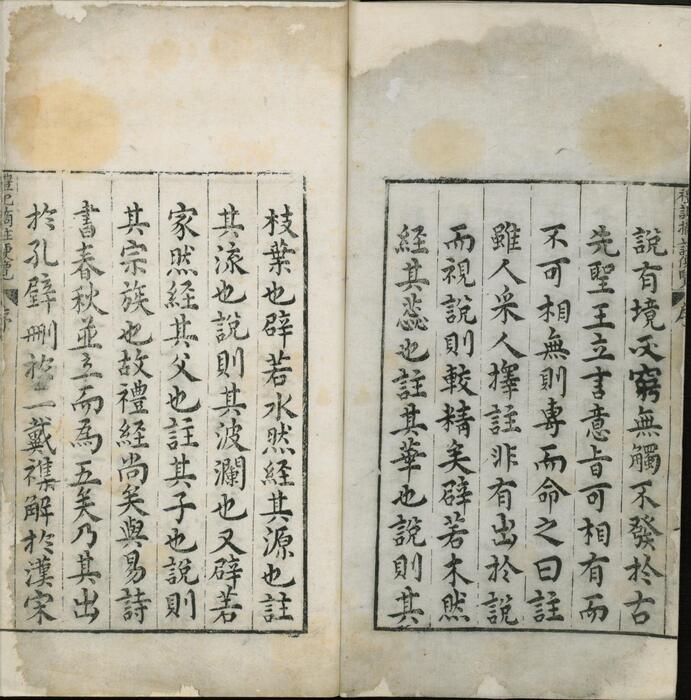 說有境不窮無觸不發於古
先聖王立言意旨可相有而
不可相無則專而命之曰註
雖人采人擇註非有出於說
而視說則較精矣辟若木然
經其蕊也註其華也說則其
枝葉也辟若水然經其源也註
其流也說則其波瀾也又辟若
家然經其父也註其子也說則
其宗族也故禮經尚矣與易詩
書春秋並立而為五矣乃其出
於孔壁刪於二戴襍解於漢宋
禮記摘註便覽 序